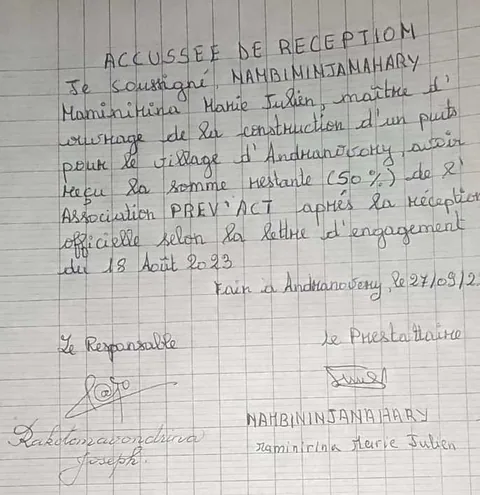 ACCUSSEE DE RECEPTION
Je soussigné, NAMBININJANAHARY
Haminirina Marie Julien, maître d'
ouvrage de la construction d'un puits
pour le village d'Andranovory, avoir
reçu la somme restante (50%) de l'
Association PREV'ACT après la réception
officielle selon la lettre d'engagement
du 18 Août 2023
Fait à Andranovory, le 27/09/2
Le Responsable
Le Prestataire
Rakotomavondriva
Joseph.
NAMBININJANAHARY
Haminirina Marie Julien